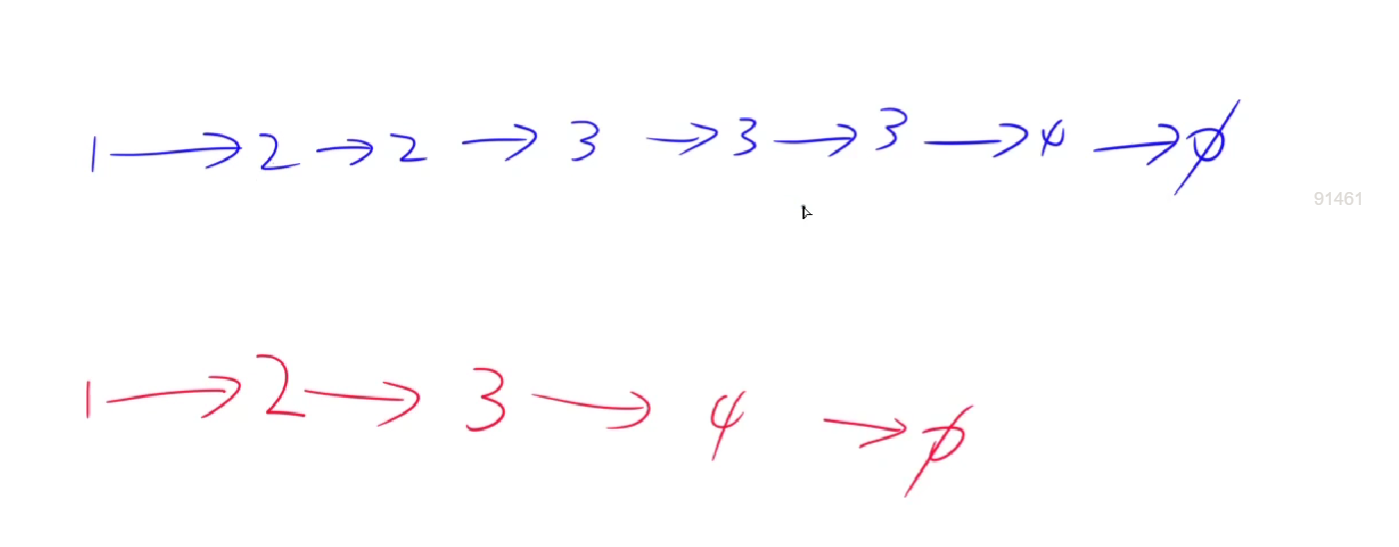 1 → 2 → 2 → 3 → 3 → 3 → 4 → ∅
91461
1 → 2 → 3 → 4 → ∅